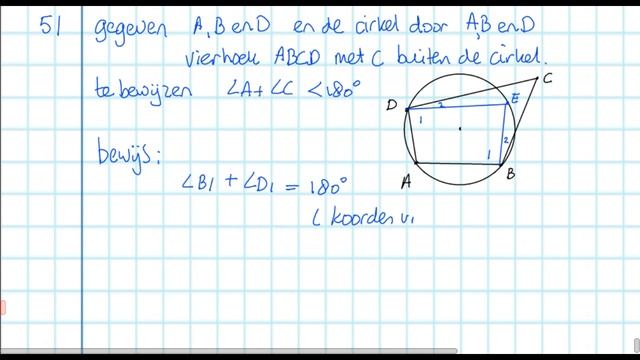 51 gegeven A, B en D en de cirkel door A,B en D
vierhoek ABCD met C buiten de cirkel.
te bewijzen ∠A + ∠C < 180°
C
D 2 E
1
2
1
A B
bewijs:
∠B1 + ∠D1 = 180°
( koorden vi